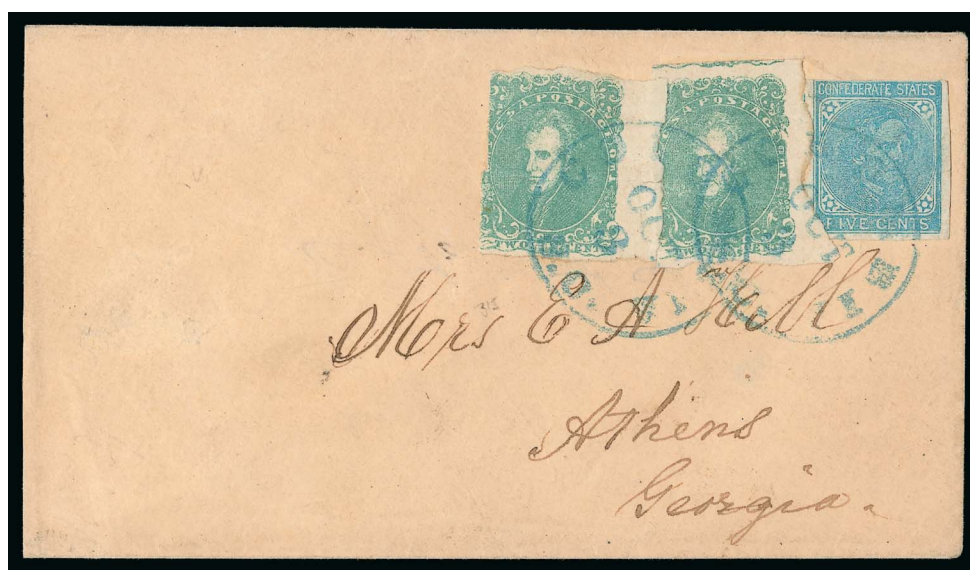 C.S.A POSTAGE
TWO CENTS
A POSTAGE
TWO CENTS
CONFEDERATE STATES
FIVE CENTS
OCT
Mrs E A Hill
Athens
Georgia.